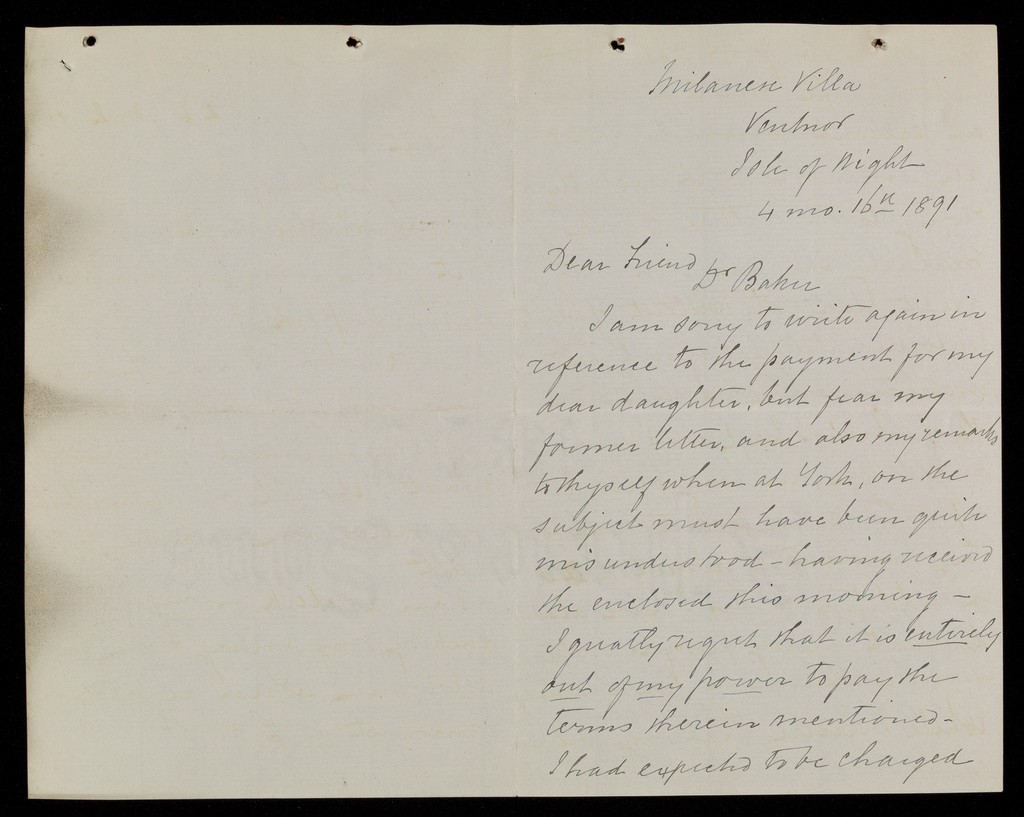 Milanese Villa
Ventnor
Isle of Wight
4 mo. 16th 1891
Dear Friend
Dr Baker
I am sorry to write again in
reference to the payment for my
dear daughter, but fear my
former letter, and also my remarks
to thyself when at York, on the
subject must have been quite
misunderstood - having received
the enclosed this morning -
I greatly regret that it is entirely
out of my power to pay the
terms therein mentioned -
I had expected to be charged